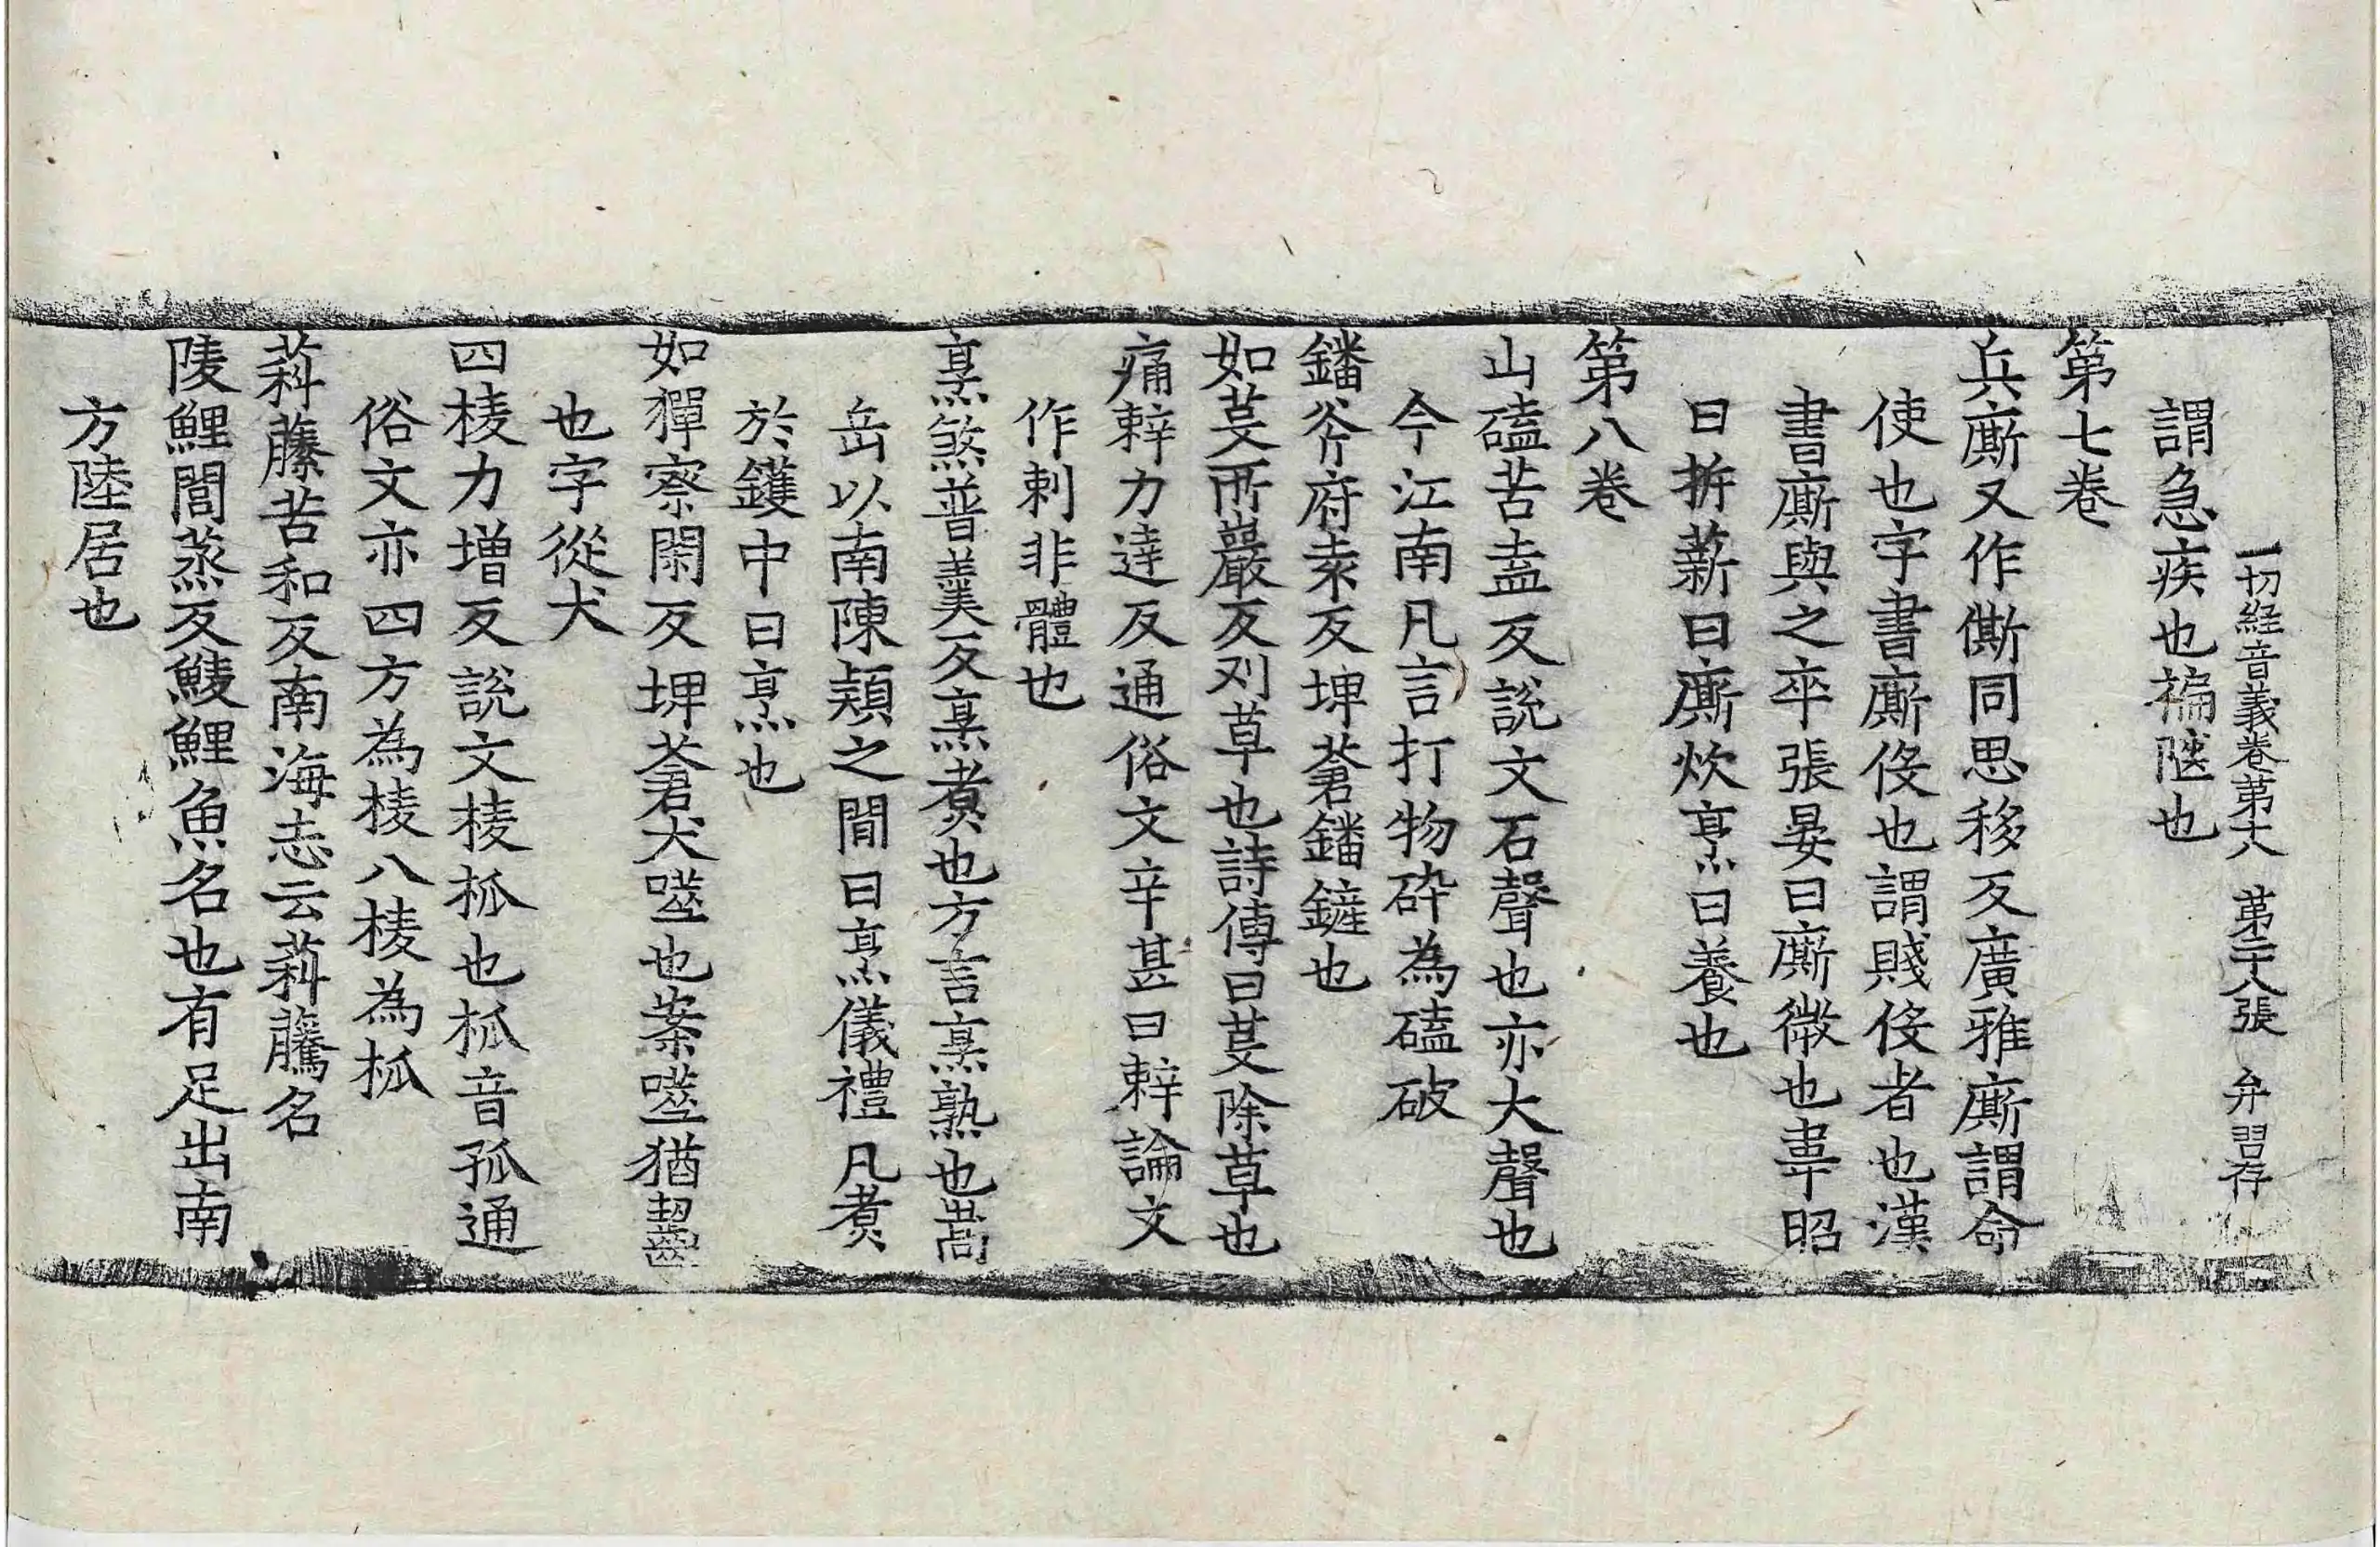 一切経音義卷第六 第二十八張 弁 習存
謂急疾也褊陋也
第七卷
兵廝又作㒋同思移反廣雅廝謂命
使也字書廝伇也謂賤伇者也漢
書廝與之卒張晏曰廝微也韋昭
曰析薪曰廝炊烹曰養也
第八卷
山磕苦盍反說文石聲也亦大聲也
今江南凡言打物碎為磕破
鐇斧府袁反埤蒼鐇鏟也
如芟所巖反刈草也詩傳曰芟除草也
痛辢力達反通俗文辛甚曰辢論文
作刺非體也
烹煞普羹反烹煮也方言烹熟也嵩
岳以南陳潁之閒曰烹儀禮凡煮
於鑊中曰烹也
如猈察閑反埤蒼犬噬也案噬猶齧
也字從犬
四棱力增反說文棱柧也柧音孤通
俗文亦四方為棱八棱為柧
萪藤苦和反南海志云萪藤名
陵鯉閭蒸反鯪鯉魚名也有足出南
方陸居也